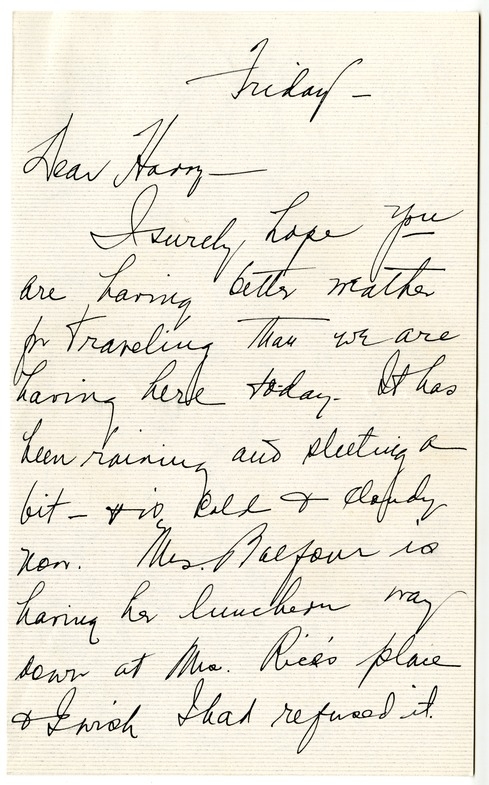 Friday —
Dear Harry —
I surely hope you
are having better weather
for traveling than we are
having here today. It has
been raining and sleeting a
bit — & is cold & cloudy
now. Mrs. Balfour is
having her luncheon way
down at Mrs. Rice's place
& I wish I had refused it.